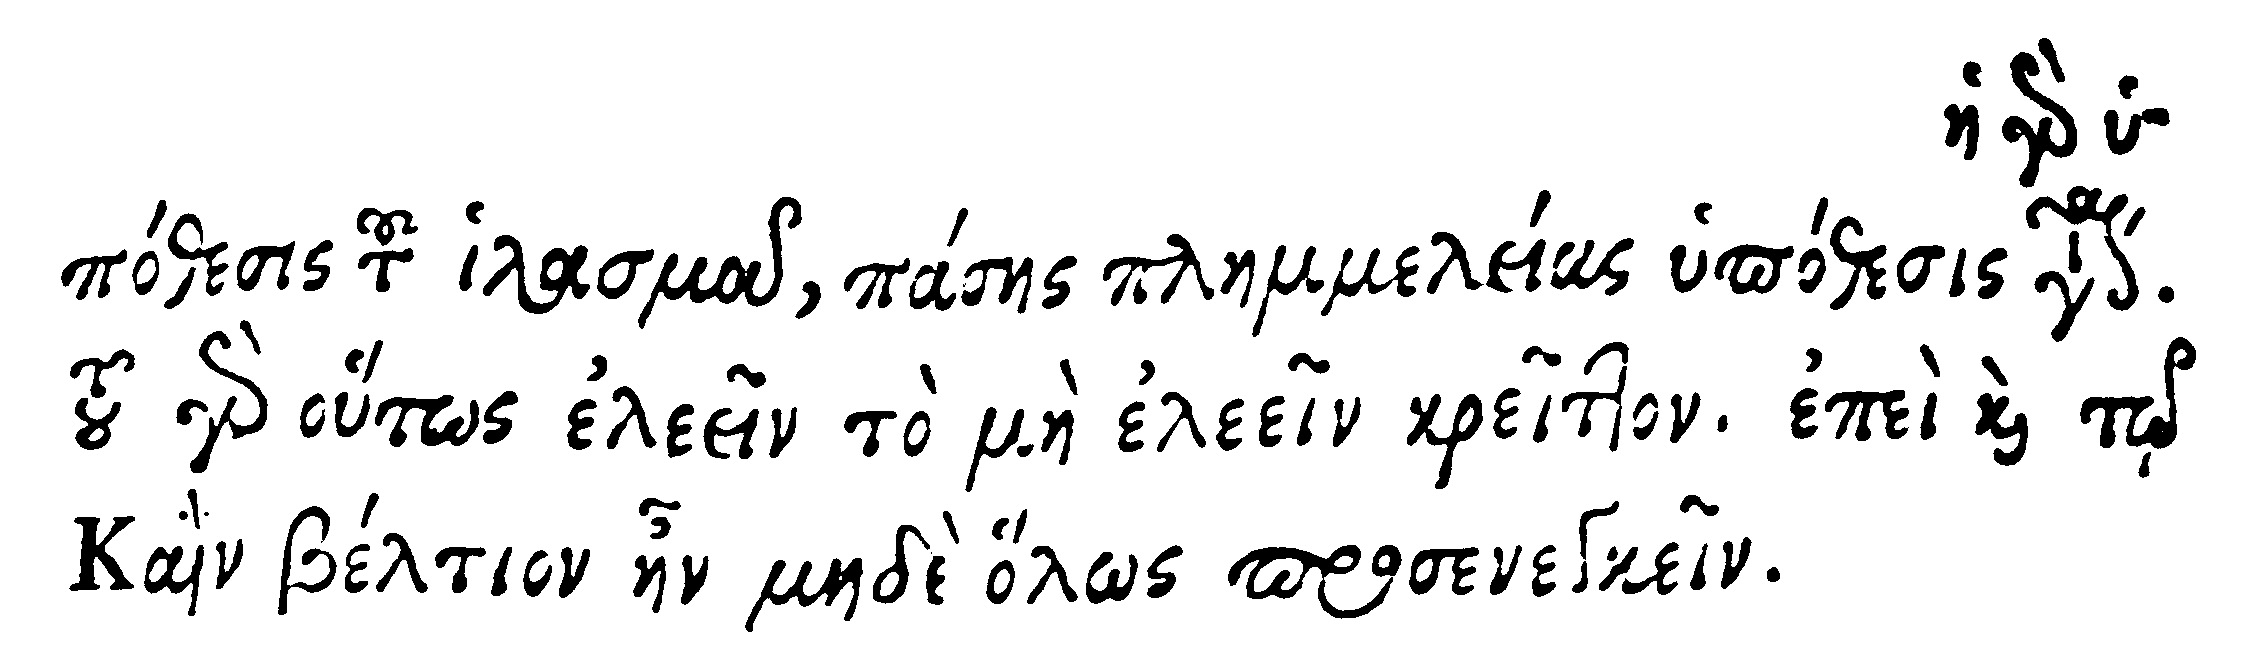 ἡ γὰρ ὑ-
πόθεσις τοῦ ἱλασμοῦ, πάσης πλημμελείας ὑπόθεσις γίνεται.
τοῦ γὰρ οὕτως ἐλεεῖν τὸ μὴ ἐλεεῖν κρεῖττον. ἐπεὶ καὶ τῷ
Καῒν βέλτιον ἦν μηδὲ ὅλως προσενεγκεῖν.